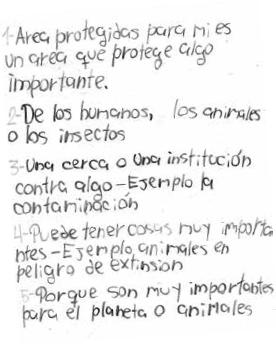 1-Area protegidas para mi es
un area que protege algo
importante.
2-De los humanos, los animales
o los insectos
3-Una cerca o una institución
contra algo-Ejemplo la
contaminación
4-Puede tener cosas muy importa
ntes-Ejemplo animales en
peligro de extinsion
5-Porque son muy importantes
para el planeta o animales